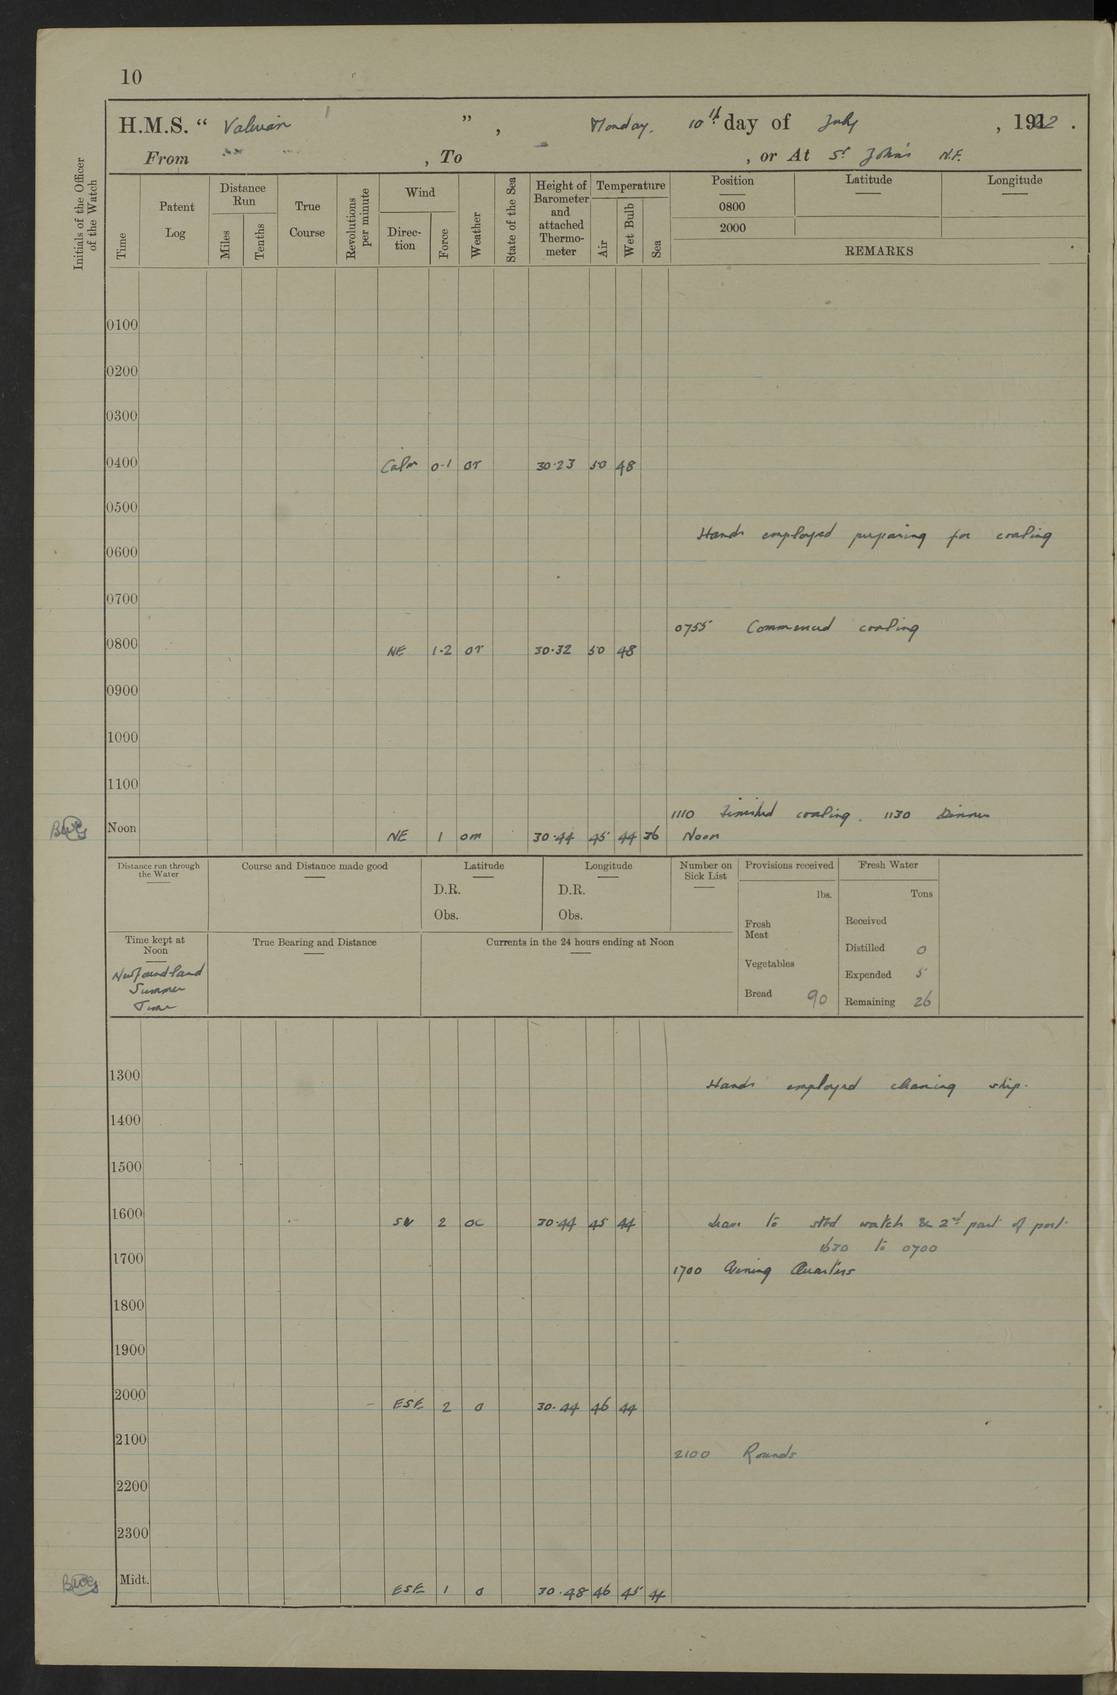 10
H.M.S. “ Valerian ” , Monday. 10th day of July , 1922 .
From , To , or At St John's N.F.
Initials of the Officer of the Watch
Time
Patent Log
Distance Run
Miles
Tenths
True Course
Revolutions per minute
Wind
Direc-tion
Force
Weather
State of the Sea
Height of Barometer and attached Thermo-meter
Temperature
Air
Wet Bulb
Sea
Position Latitude Longitude
0800
2000
REMARKS
0100
0200
0300
0400 Calm 0·1 or 30·23 50 48
0500
Hands employed preparing for coaling
0600
0700
0755 Commenced coaling
0800 NE 1·2 or 30·32 50 48
0900
1000
1100
1110 Finished coaling. 1130 Dinner
Noon NE 1 om 30·44 45 44 36 Noon
Distance run through the Water
Course and Distance made good
Latitude
D.R.
Obs.
Longitude
D.R.
Obs.
Number on Sick List
Provisions received
lbs.
Fresh Meat
Vegetables
Bread 90
Fresh Water
Tons
Received
Distilled 0
Expended 5
Remaining 26
Time kept at Noon
Newfoundland
Summer
Time
True Bearing and Distance
Currents in the 24 hours ending at Noon
1300 Hands employed cleaning ship.
1400
1500
1600 2 oc 30·44 45 44 Leave to stbd watch & 2nd part of port
1630 to 0700
1700
1700 Evening Quarters
1800
1900
2000 ESE 2 o 30·44 46 44
2100
2100 Rounds
2200
2300
Midt. ESE 1 o 30·48 46 45 44